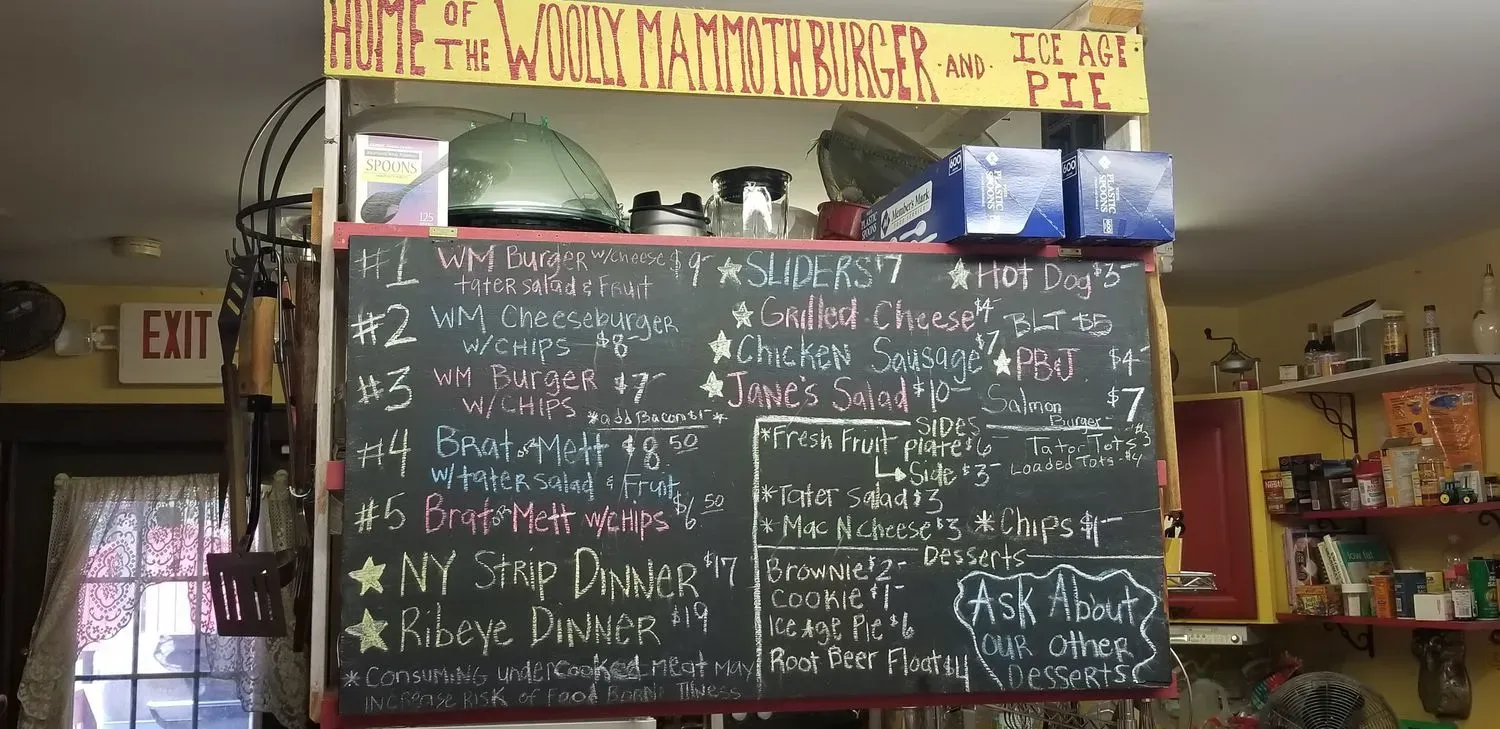 HOME OF THE WOOLLY MAMMOTH BURGER AND ICE AGE PIE
SPOONS
125
Member's Mark
PLASTIC SPOONS
600
PLASTIC SPOONS
600
PLASTIC SPOONS
EXIT
#1 WM Burger w/cheese $9-
tater salad & Fruit
#2 WM Cheeseburger
w/CHIPS $8-
#3 WM Burger $7-
w/CHIPS
*add Bacon $1-*
#4 Brat or Mett $8.50
w/tater salad & Fruit
#5 Brat or Mett w/CHIPS $6.50
NY Strip Dinner $17
Ribeye Dinner $19
* Consuming undercooked meat may
increase risk of Food Borne Illness
SLIDERS $7
Hot Dog $3-
Grilled Cheese $4-
BLT $5
Chicken Sausage $7
PB&J $4-
Jane's Salad $10-
Salmon Burger $7
SIDES
*Fresh Fruit plate $6-
Side $3-
Tator Tots $3
Loaded Tots $4
*Tater Salad $3
*Mac N cheese $3
*Chips $1-
Desserts
Brownie $2-
Cookie $1-
Ice Age Pie $6
Root Beer Float $4
Ask About
our other
Desserts
low fat